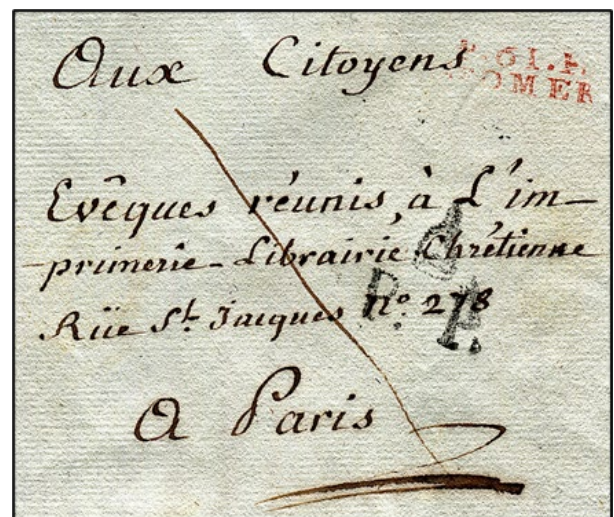 Aux Citoyens
P. 61. P.
OMER
Evêques réunis à L'im-
-primerie-Librairie Chrétienne
Rüe St. Jacques N.o 278
P. P.
A Paris